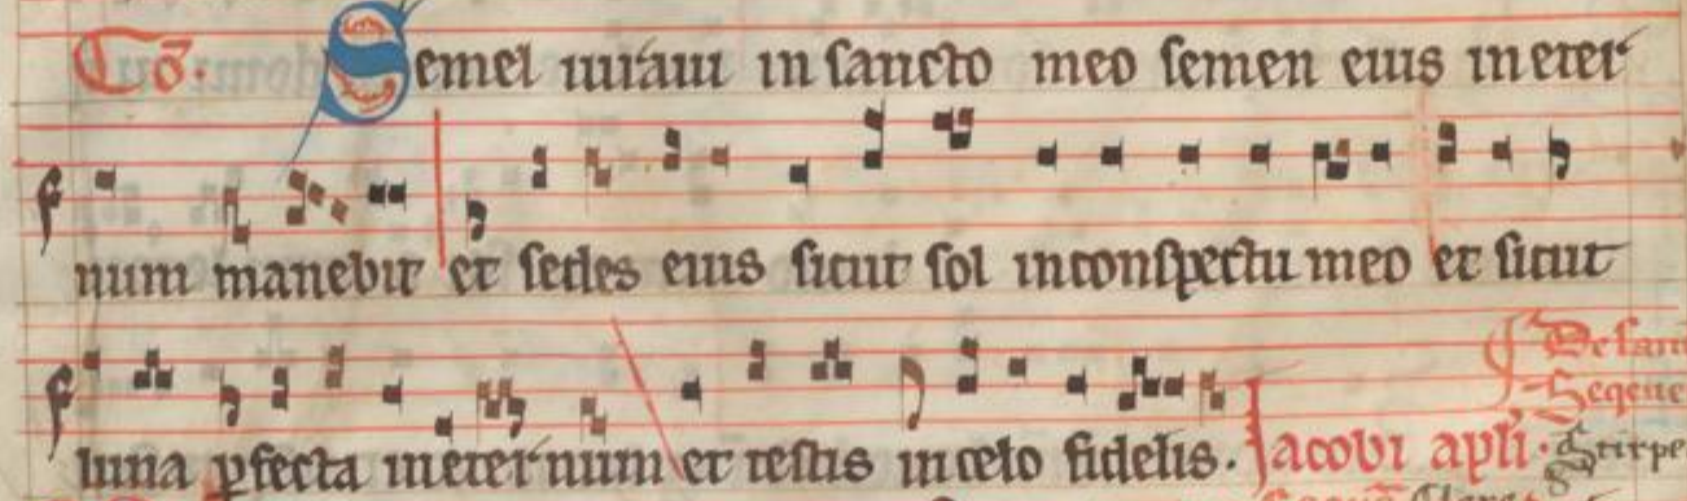 Co̅. Semel iuraui in sancto meo semen eius in eter
num manebit et sedes eius sicut sol in conspectu meo et sicut
luna ꝑfecta in eternum et testis in celo fidelis. Iacobi apl̅i.
De san
Seqene
Stirpe